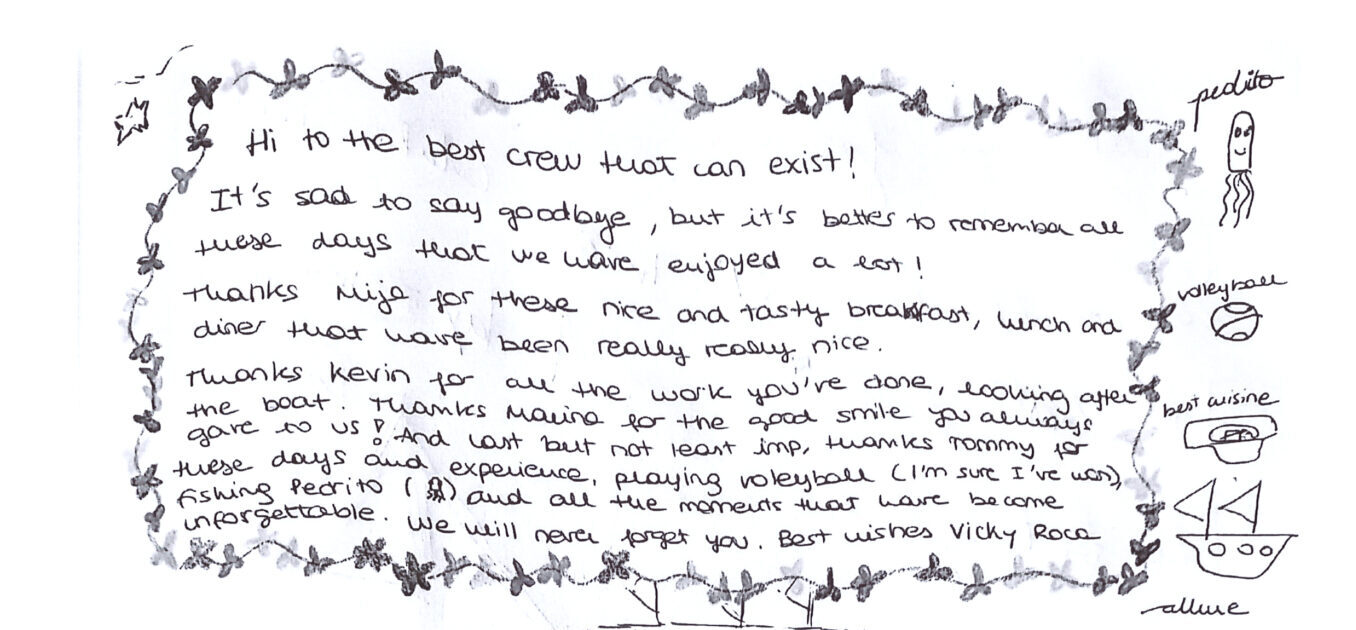 Hi to the best crew that can exist!
It's sad to say goodbye, but it's better to remember all
these days that we have enjoyed a lot!
Thanks Mija for these nice and tasty breakfast, lunch and
diner that have been really really nice.
Thanks Kevin for all the work you've done, looking after
the boat. Thanks Marina for the good smile you always
gave to us! And last but not least imp, thanks Tommy for
these days and experience, playing voleyball (I'm sure I've won),
fishing Pedrito ( ) and all the moments that have become
unforgettable. We will never forget you. Best wishes Vicky Roca
pedito
voleyball
best cuisine
allure